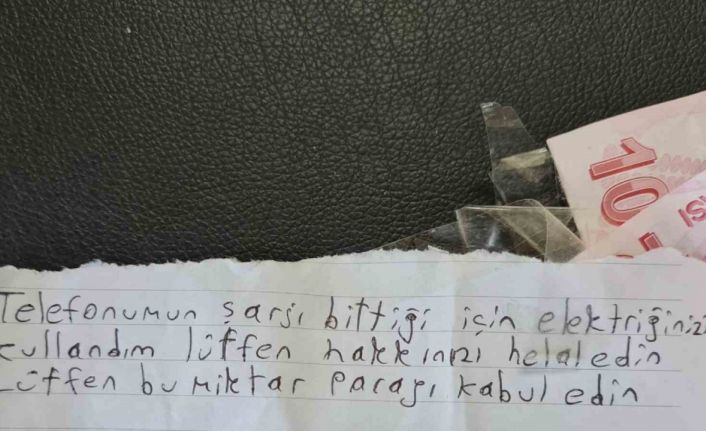 10
ISI
Telefonumun şarjı bittiği için elektriğinizi
kullandım lütfen hakkınızı helal edin
Lütfen bu miktar parayı kabul edin